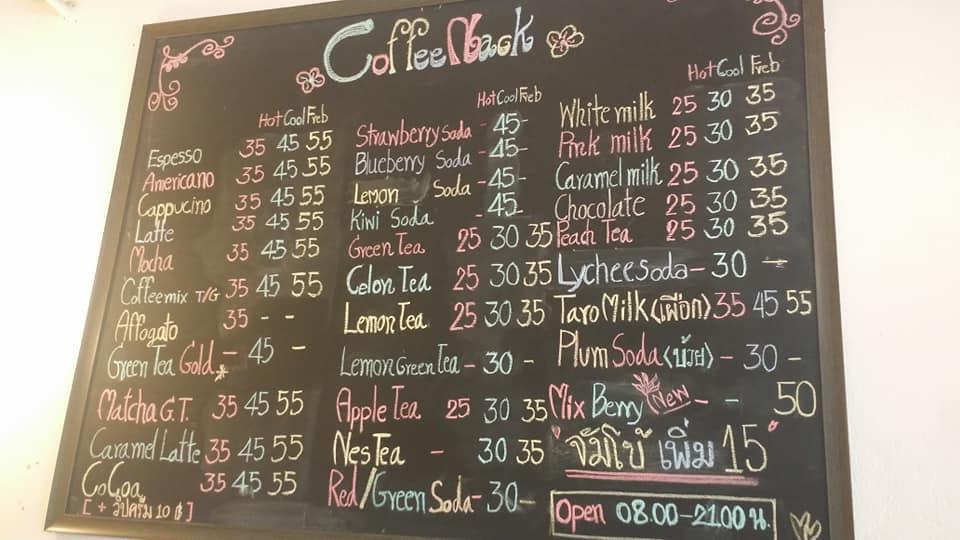 Coffee Mask
Hot Cool Freb
Espesso 35 45 55
Americano 35 45 55
Cappucino 35 45 55
Latte 35 45 55
Mocha 35 45 55
Coffeemix T/G 35 45 55
Affogato 35 - -
Green Tea Gold - 45 -
Matcha G.T. 35 45 55
Caramel Latte 35 45 55
CoCoa 35 45 55
[ + วิปครีม 10 ฿ ]
Hot Cool Freb
Strawberry Soda - 45 -
Blueberry Soda - 45 -
Lemon Soda - 45 -
Kiwi Soda - 45 -
Green Tea 25 30 35
Celon Tea 25 30 35
Lemon Tea 25 30 35
Lemon Green Tea - 30 -
Apple Tea 25 30 35
Nes Tea - 30 35
Red/Green Soda - 30 -
Hot Cool Freb
White milk 25 30 35
Pink milk 25 30 35
Caramel milk 25 30 35
Chocolate 25 30 35
Peach Tea 25 30 35
Lychee soda - 30 -
Taro Milk (เผือก) 35 45 55
Plum Soda (บ๊วย) - 30 -
Mix Berry New - - 50
"จัมโบ้ เพิ่ม 15"
Open 08.00-21.00 น.